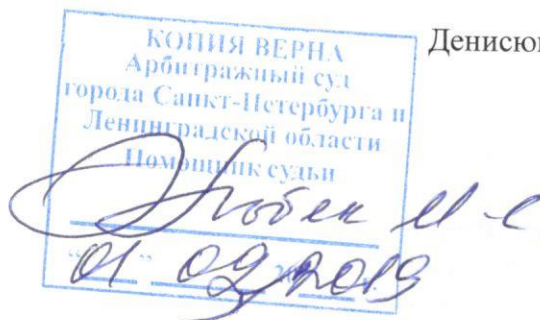 Денисюк
КОПИЯ ВЕРНА
Арбитражный суд
города Санкт-Петербурга и
Ленинградской области
Помощник судьи
"01" 02 2019